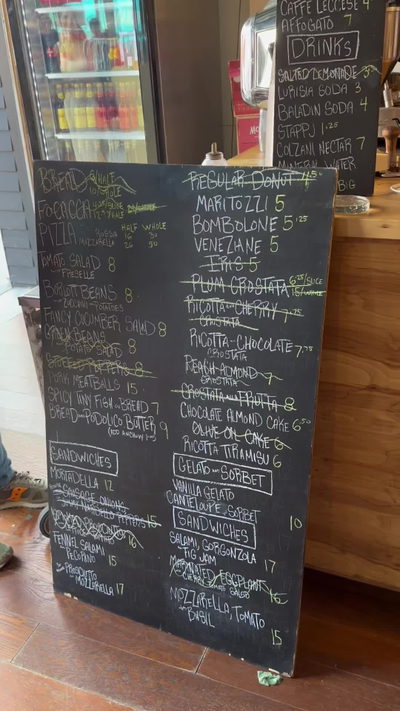 CAFFE LECCESE 4
AFFOGATO 7
DRINKS
SALTED LEMONADE
LURISIA SODA 3
BALADIN SODA 4
STAPPJ 1.25
COLZANI NECTAR 7
WATER
BIG
BREAD
HALF
WHOLE
FOCACCIA
PIZZA
MOZZARELLA
HALF WHOLE
TOMATO SALAD 8
FRESELLE
BORLOTTI BEANS 8
ZUCCHINI POTATOES
FANCY CUCUMBER SALAD 8
GREEN BEANS 8
POTATO SALAD
PEPPERS 8
MEATBALLS 15
SPICY TINY FISH BREAD 7
BREAD PODOLICO BUTTER 9
SANDWICHES
MORTADELLA 12
SAUSAGE ONIONS
PEPPERS 15
16
FENNEL SALAMI
PECORINO 15
PROSCIUTTO
MOZZARELLA 17
REGULAR DONUT 4.25
MARITOZZI 5
BOMBOLONE 5.25
VENEZIANE 5
IRIS 5
PLUM CROSTATA 6.25/SLICE
RICOTTA CHERRY 7.25
CROSTATA
RICOTTA-CHOCOLATE 7.25
CROSTATA
PEACH-ALMOND 7
CROSTATA
CROSTATA FRUTTA 8
CHOCOLATE ALMOND CAKE 6.50
OLIVE OIL CAKE 6
RICOTTA TIRAMISU 6
GELATO SORBET
VANILLA GELATO
CANTELOUPE SORBET 10
SANDWICHES
SALAMI, GORGONZOLA
FIG JAM 17
MARINATED EGGPLANT
16
MOZZARELLA, TOMATO
BASIL 15